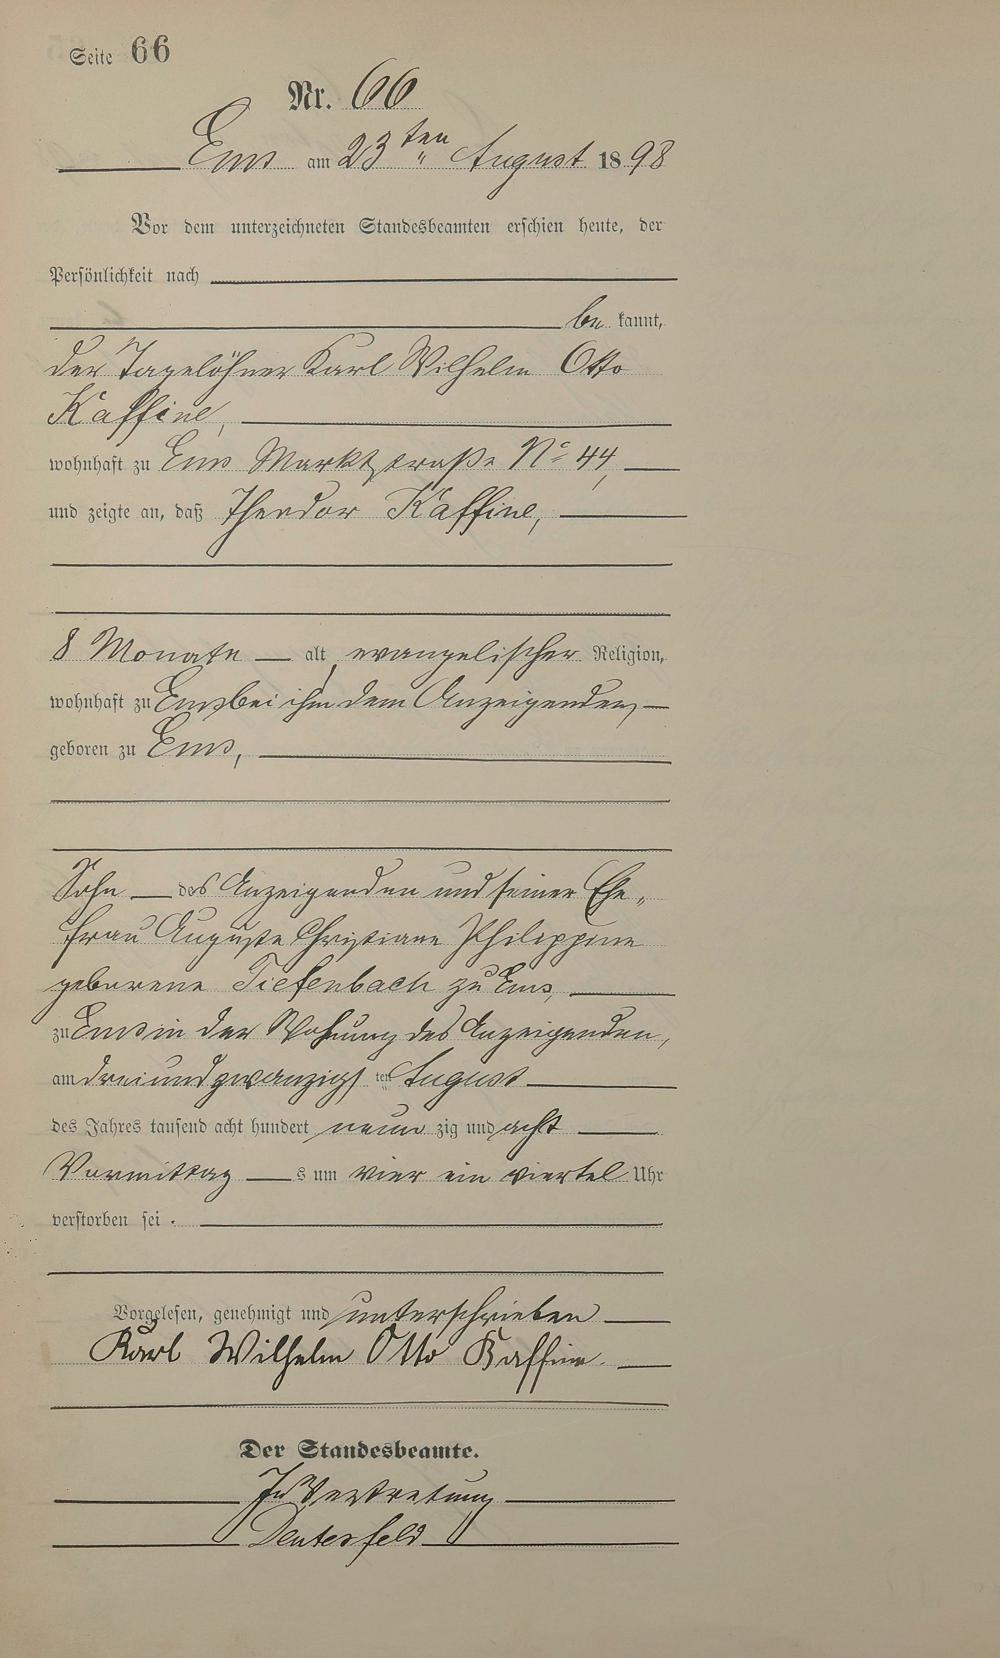 Seite 66
Nr. 66
Ems am 23ten August 1898
Vor dem unterzeichneten Standesbeamten erschien heute, der
Persönlichkeit nach
be kannt,
der Tagelöhner Karl Wilhelm Otto
Kaffine,
wohnhaft zu Ems Marktstraße No 44,
und zeigte an, daß Theodor Kaffine,
8 Monate alt, evangelischer Religion,
wohnhaft zu Ems bei ihm dem Anzeigenden,
geboren zu Ems,
Sohn des Anzeigenden und seiner Ehe„
frau Auguste Christiane Philippine
geborene Tiefenbach zu Ems,
zu Ems in der Wohnung des Anzeigenden,
am dreiundzwanzigsten August
des Jahres tausend acht hundert neun zig und acht
Vormittag s um vier ein viertel Uhr
verstorben sei.
Vorgelesen, genehmigt und unterschrieben
Karl Wilhelm Otto Kaffine.
Der Standesbeamte.
In Vertretung